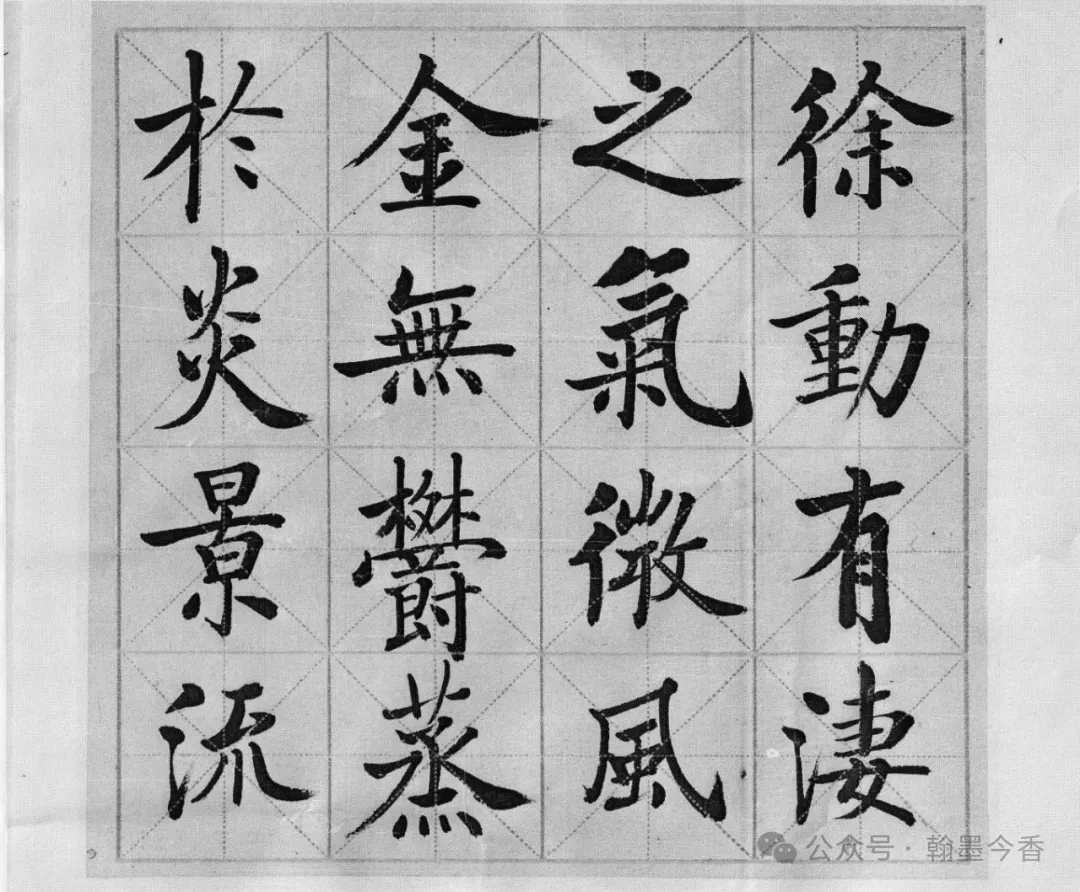 於炎景流
金無鬱蒸
之氣微風
徐動有淒
公众号·翰墨今香